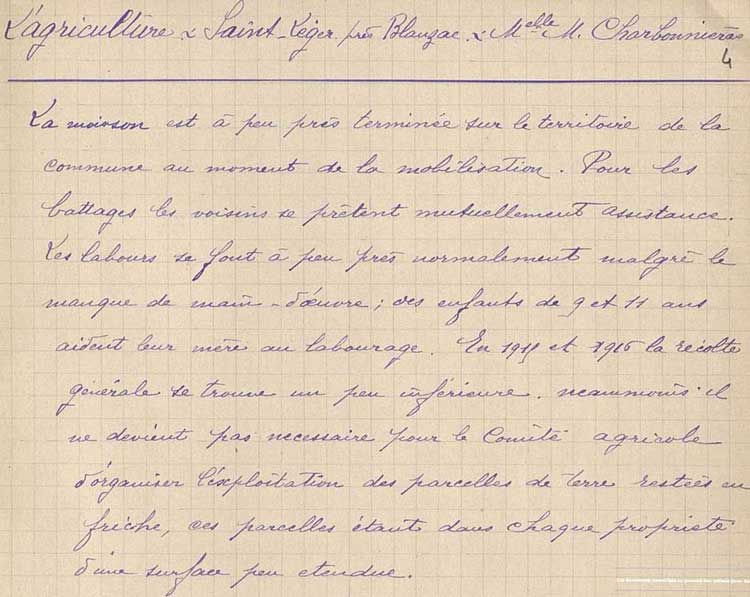 L'agriculture à Saint-Léger près Blanzac. à Melle M. Charbonnieras
4
La moisson est à peu près terminée sur le territoire de la
commune au moment de la mobilisation. Pour les
battages les voisins se prêtent mutuellement assistance.
Les labours se font à peu près normalement malgré le
manque de main-d'œuvre ; des enfants de 9 et 11 ans
aident leur mère au labourage. En 1915 et 1916 la récolte
générale se trouve un peu inférieure. neammoins il
ne devient pas necessaire pour le Comité agricole
d'organiser l'exploitation des parcelles de terre restées en
friche, ces parcelles étant dans chaque propriete
d'une surface peu etendue.